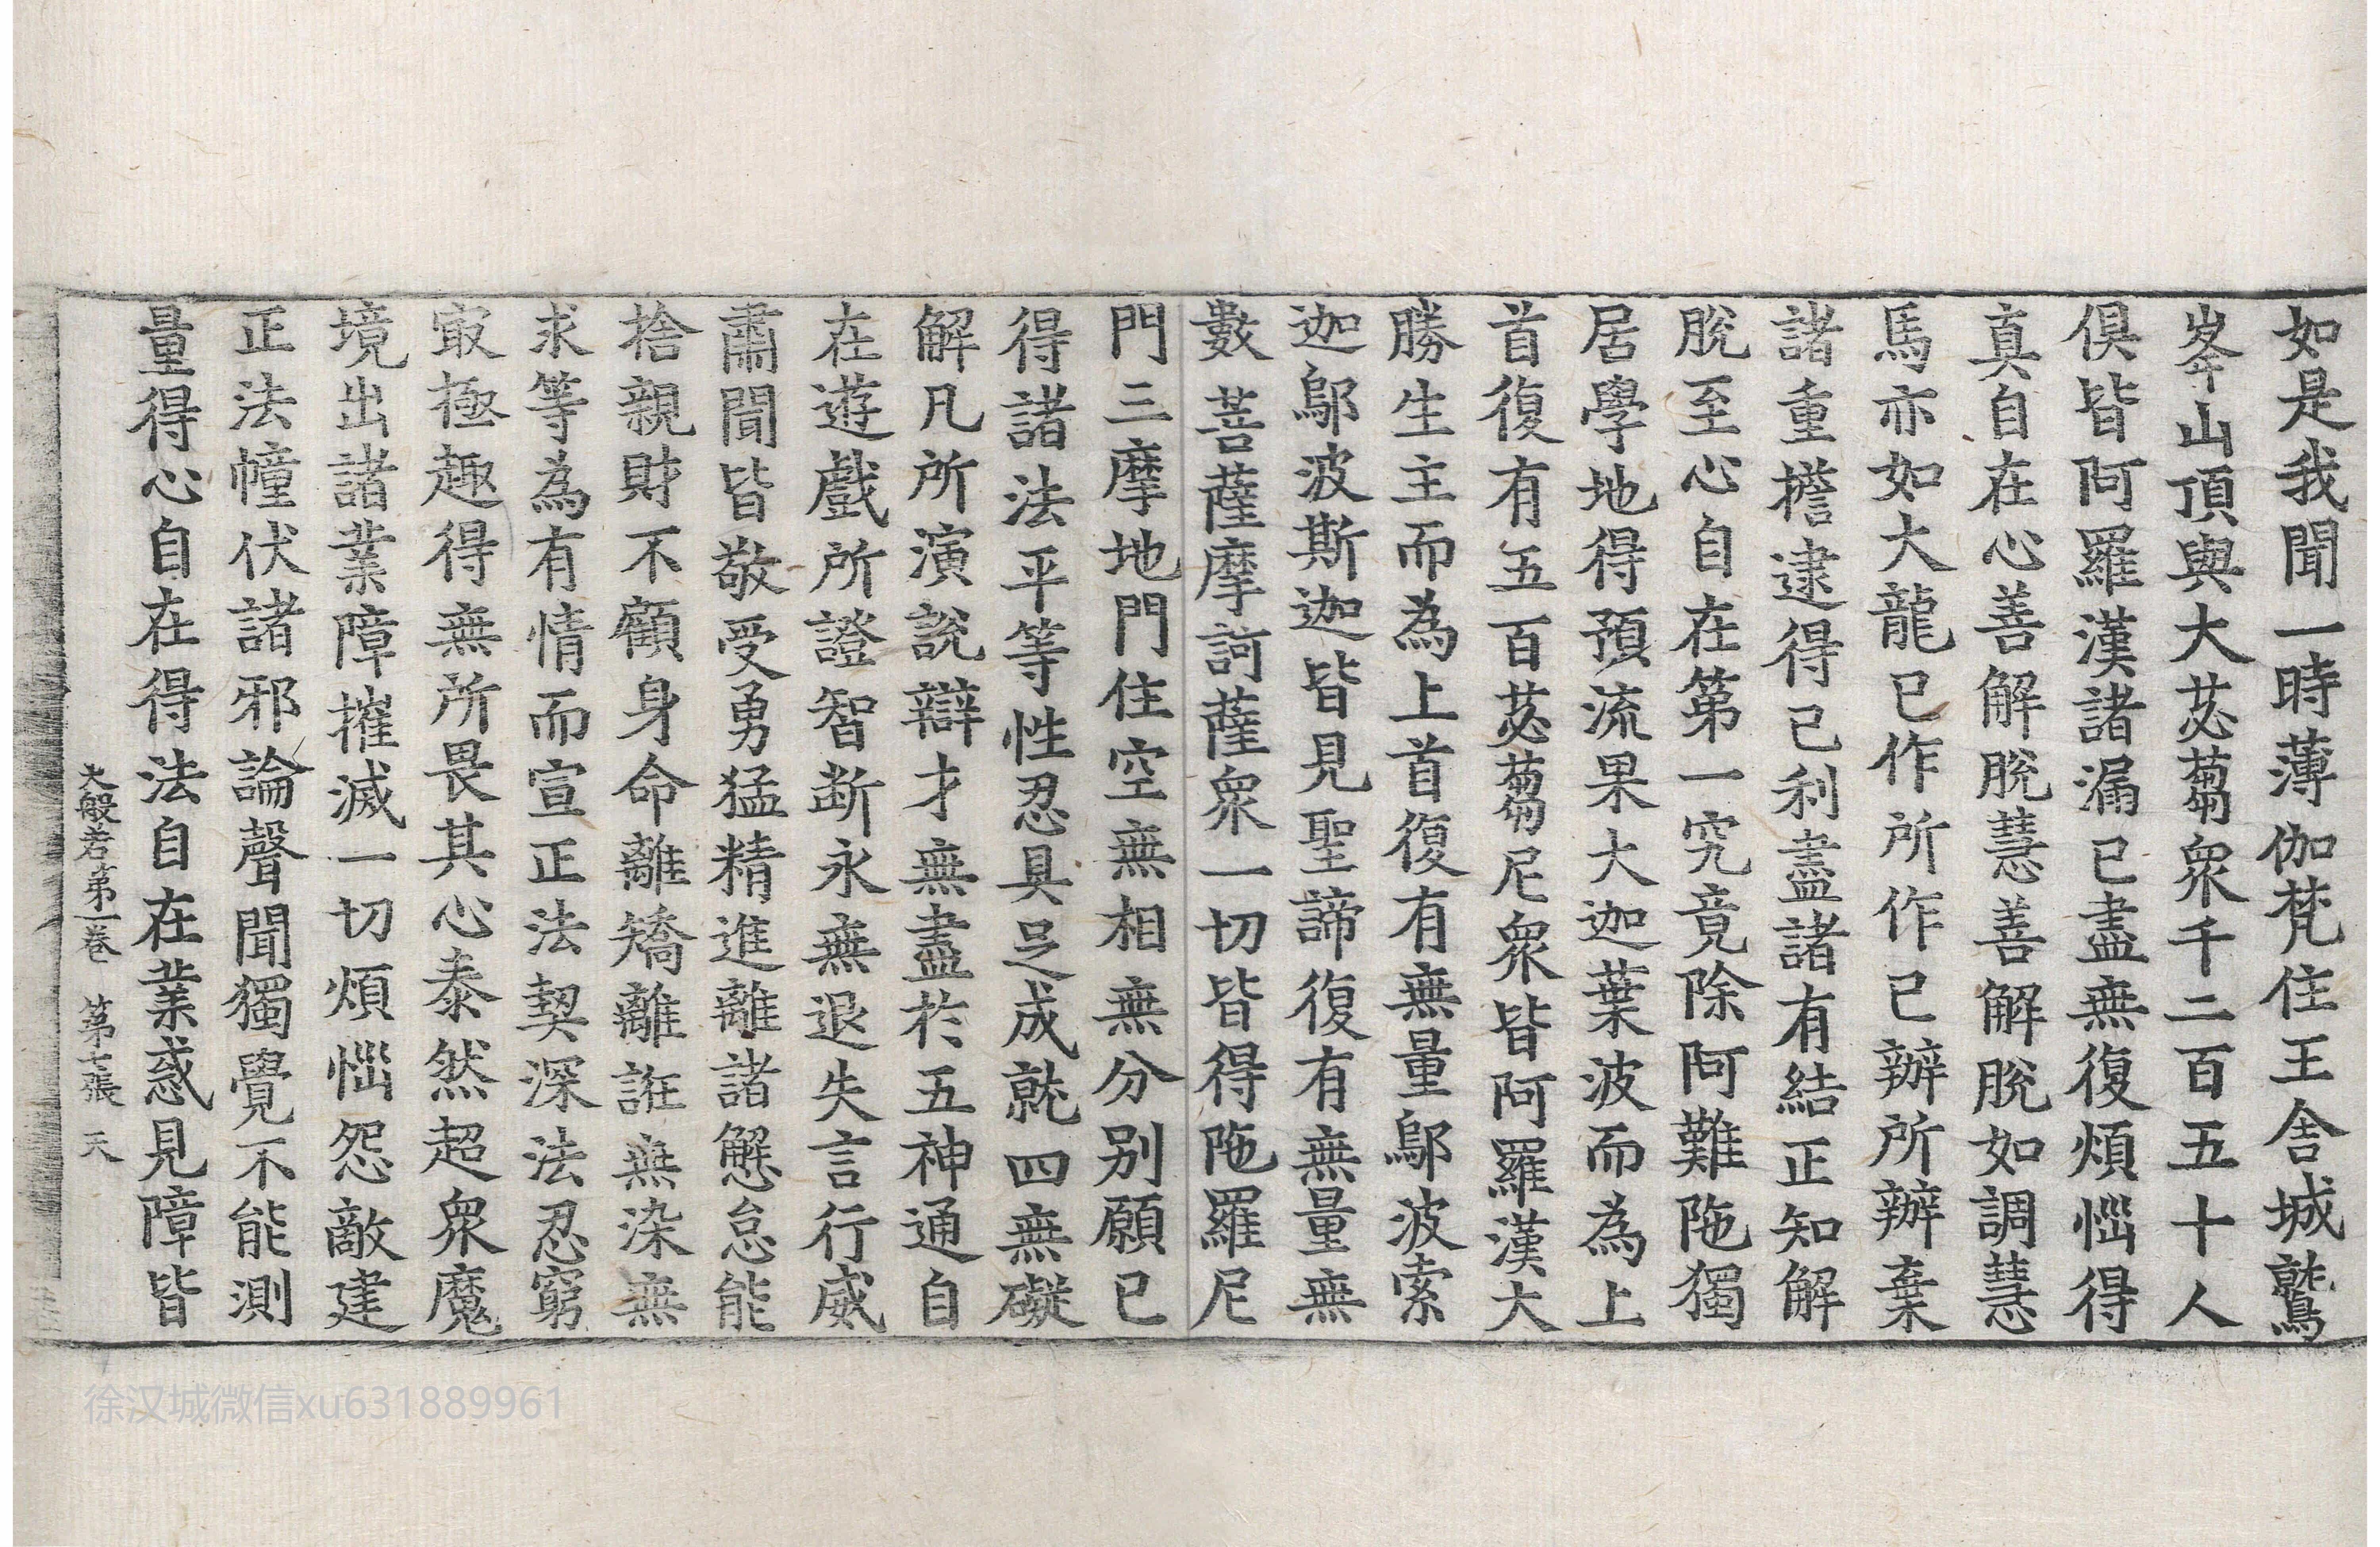 如是我聞一時薄伽梵住王舍城鷲
峯山頂與大苾蒭衆千二百五十人
俱皆阿羅漢諸漏已盡無復煩惱得
真自在心善解脫慧善解脫如調慧
馬亦如大龍已作所作已辦所辦棄
諸重擔逮得己利盡諸有結正知解
脫至心自在第一究竟除阿難陁獨
居學地得預流果大迦葉波而為上
首復有五百苾蒭尼衆皆阿羅漢大
勝生主而為上首復有無量鄔波索
迦鄔波斯迦皆見聖諦復有無量無
數菩薩摩訶薩衆一切皆得陁羅尼
門三摩地門住空無相無分別願已
得諸法平等性忍具足成就四無礙
解凡所演說辯才無盡於五神通自
在遊戲所證智斷永無退失言行威
肅聞皆敬受勇猛精進離諸懈怠能
捨親財不顧身命離矯離誑無染無
求等為有情而宣正法契深法忍窮
㝡極趣得無所畏其心泰然超衆魔
境出諸業障摧滅一切煩惱怨敵建
正法幢伏諸邪論聲聞獨覺不能測
量得心自在得法自在業惑見障皆
大般若第一卷 第七張 天
徐汉城微信xu631889961